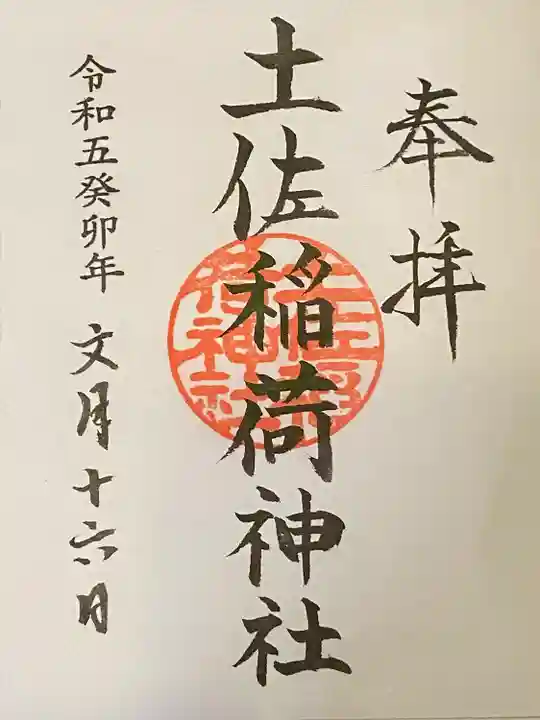 奉拝
土佐稲荷神社
令和五癸卯年 文月十六日